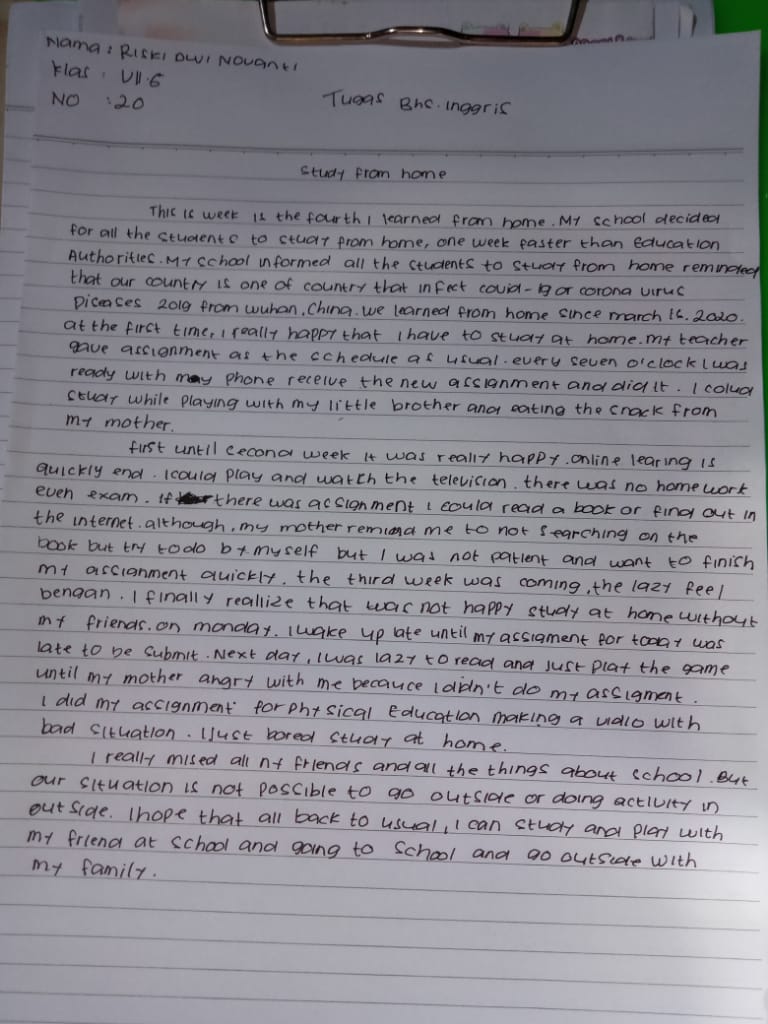 Nama : RISKI DWI NOVANTI
Klas : VII.6
NO : 20
Tugas Bhs. Inggris
Study from home
This is week is the fourth I learned from home. My school decided
for all the students to study from home, one week faster than Education
Authorities. My school informed all the students to study from home reminded
that our country is one of country that infect covid-19 or corona virus
Diceases 2019 from wuhan, China. we learned from home since march 16. 2020.
at the first time, I really happy that I have to study at home. my teacher
gave assignment as the schedule as usual. every seven o'clock I was
ready with may phone receive the new assignment and did it. I colud
study while playing with my little brother and eating the snack from
my mother.
first until second week it was really happy. online learing is
quickly end. I could play and watch the television. there was no home work
even exam. if there was assignment I could read a book or find out in
the internet. although, my mother remind me to not searching on the
book but try to do by myself but I was not patient and want to finish
my assignment quickly. the third week was coming, the lazy feel
bengan. I finally reallize that was not happy study at home without
my friends. on monday, I wake up late until my assigment for today was
late to be submit. Next day, I was lazy to read and just play the game
until my mother angry with me because I didn't do my assigment.
I did my assignment for physical Education making a vidio with
bad situation. I just bored study at home.
I really mised all my friends and all the things about school. But
our situation is not possible to go outside or doing activity in
out side. I hope that all back to usual, I can study and play with
my friend at school and going to school and go outside with
my family.